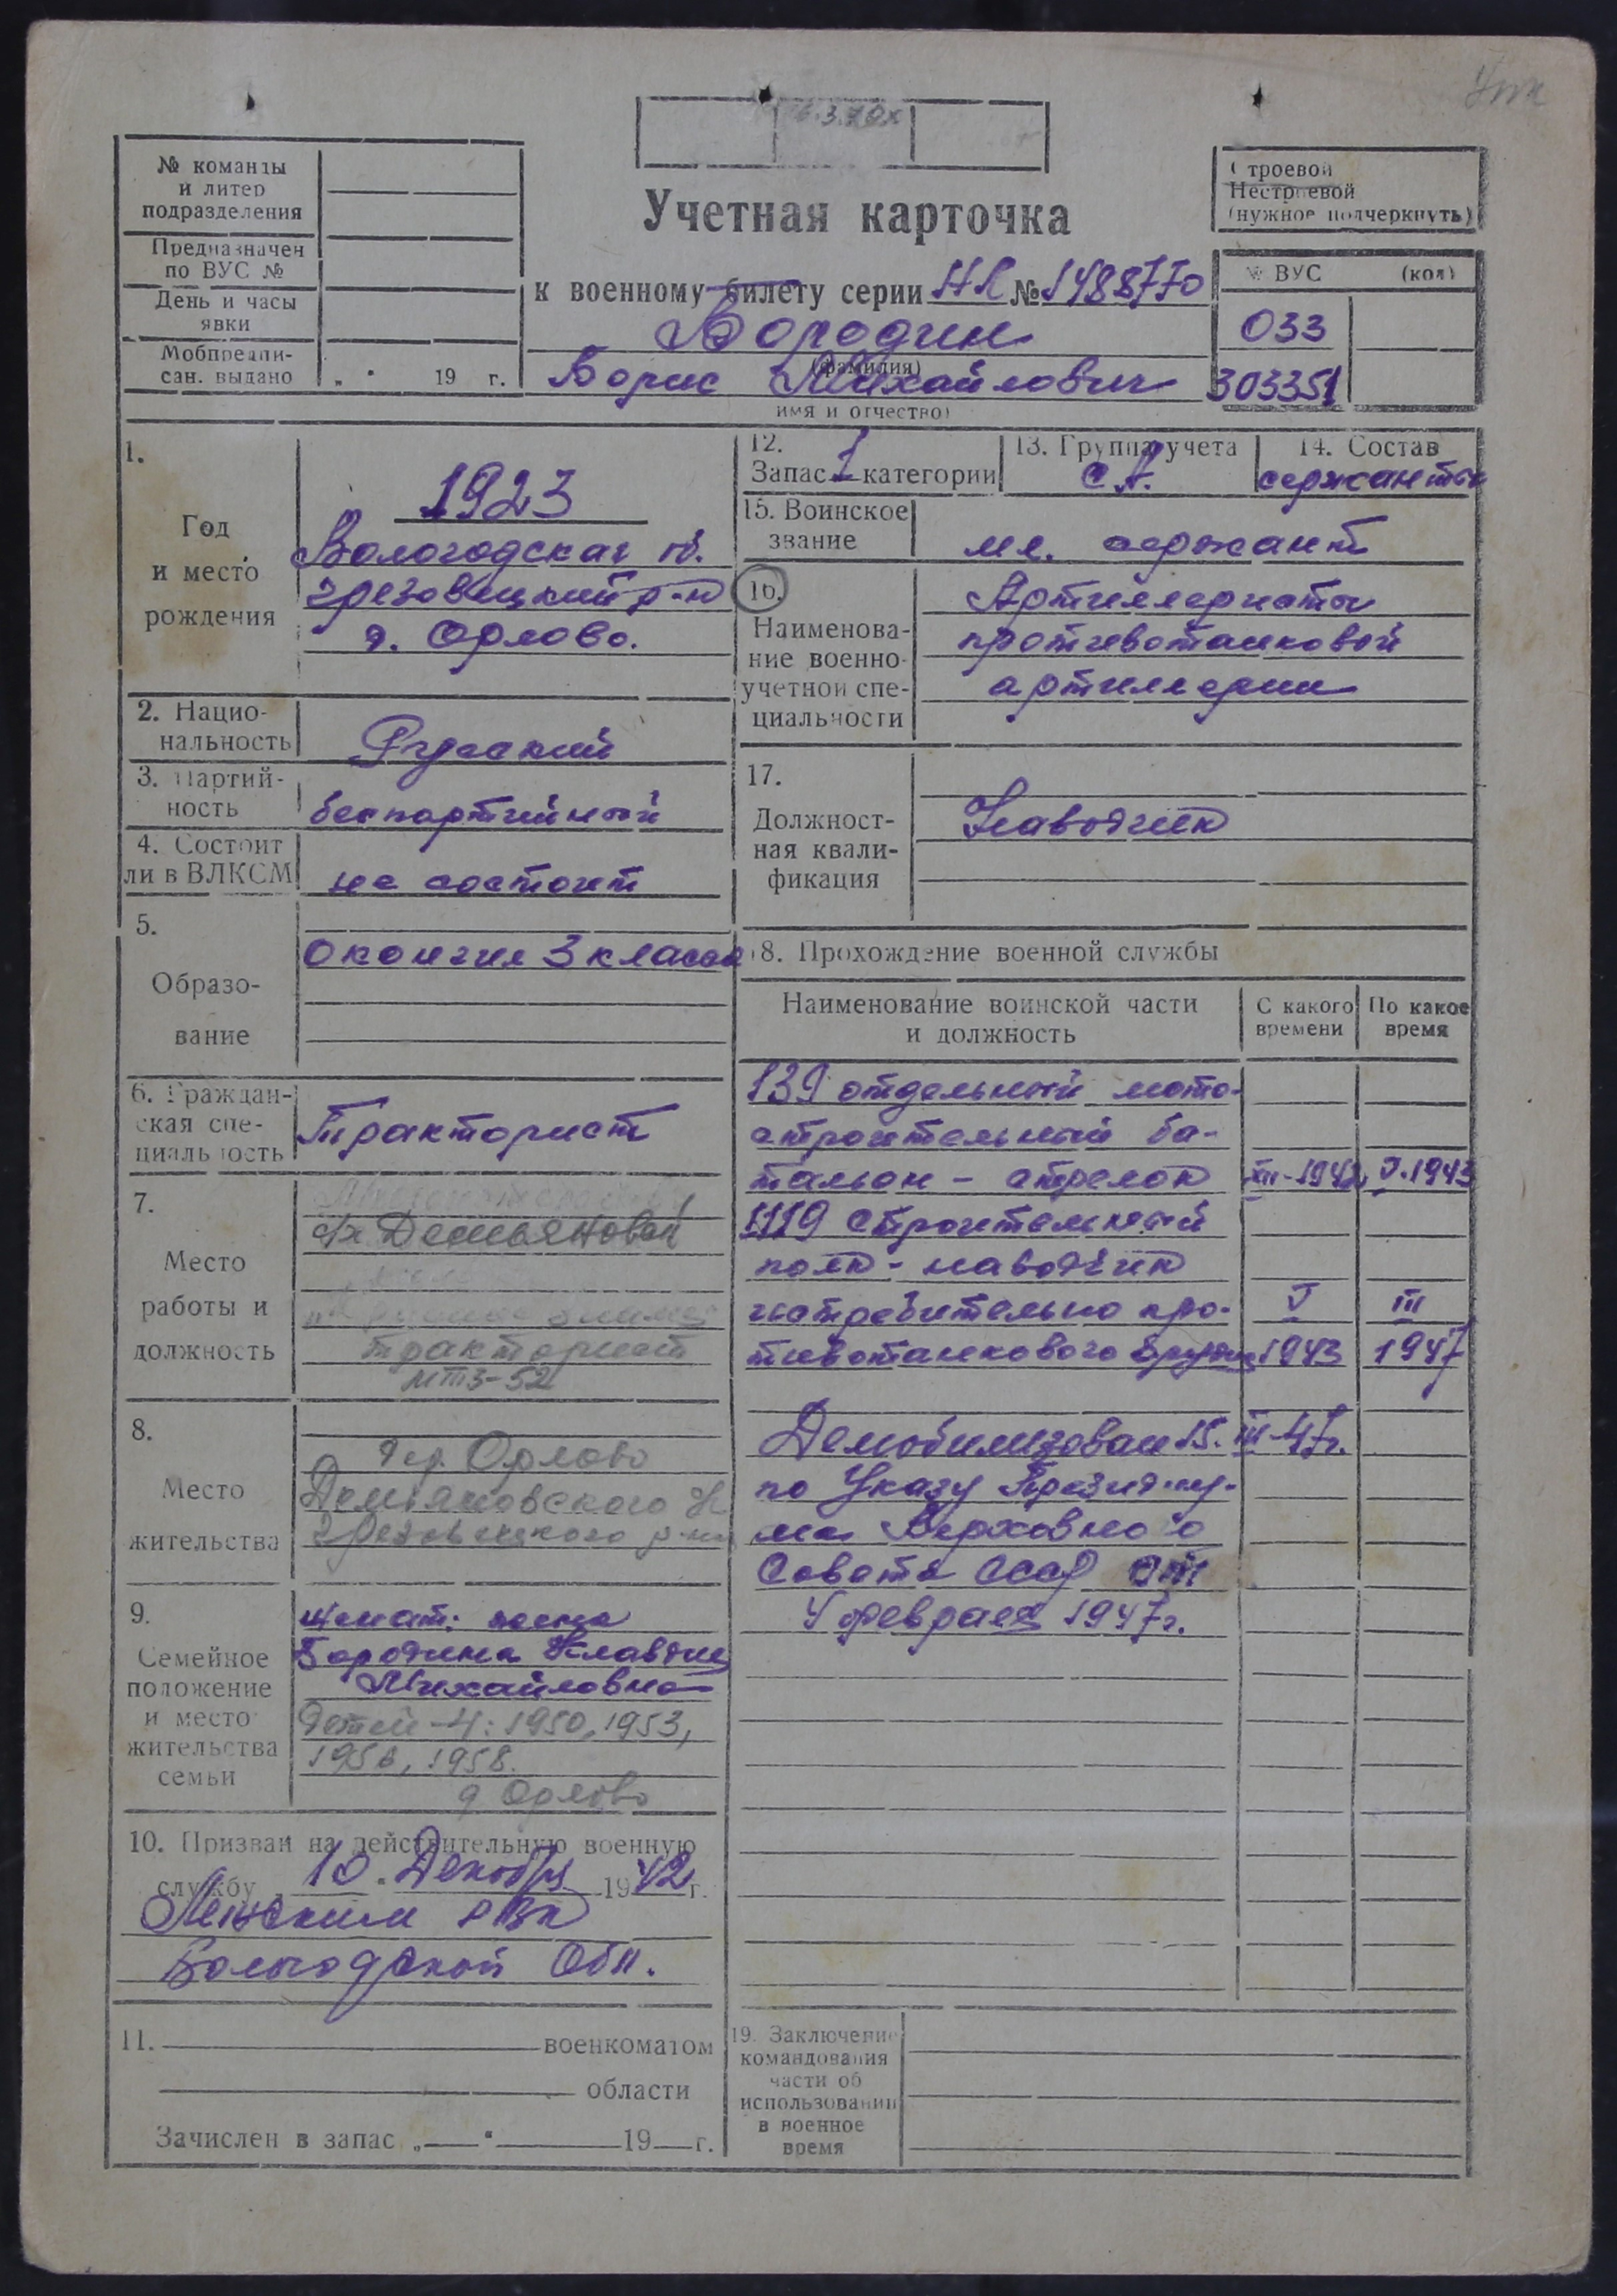 Утк
6.3.70г
№ команды
и литер
подразделения
Предназначен
по ВУС №
День и часы
явки
Мобпредпи-
сан. выдано „ “ 19 г.
Учетная карточка
к военному билету серии НК № 1488770
Бородин
(фамилия)
Борис Михайлович
имя и отчество)
Строевой
Нестроевой
(нужное подчеркнуть)
№ ВУС (код)
033
303351
1.
Год
и место
рождения
1923
Вологодская об.
грязовецкий р-н
д. Орлово.
2. Нацио-
нальность
Русский
3. Партий-
ность
беспартийный
4. Состоит
ли в ВЛКСМ
не состоит
5.
Образо-
вание
окончил 3 класса
6. Граждан-
ская спе-
циальность
Тракторист
7.
Место
работы и
должность
Демьяновский
тракторист
МТЗ-52
8.
Место
жительства
дер. Орлово
Демьяновского
Грязовецкого р-на
9.
Семейное
положение
и место
жительства
семьи
женат: жена
Бородина Клавдия
Михайловна
детей-4: 1950, 1953,
1956, 1958.
д Орлово
10. Призван на действительную военную
службу 10 “ Декабря 1942 г.
РВК
Вологодской Обл.
11. военкоматом
области
Зачислен в запас „ “ 19 г.
12.
Запас 1 категории
13. Группа учета
СА.
14. Состав
сержанты
15. Воинское
звание
мл. сержант
16.
Наименова-
ние военно-
учетной спе-
циальности
Артиллеристы
противотанковой
артиллерии
17.
Должност-
ная квали-
фикация
Наводчик
18. Прохождение военной службы
Наименование воинской части
и должность
С какого
времени
По какое
время
139 отдельный мото-
строительный ба-
тальон - стрелок XII-1942 V.1943
1119 строительный
полк - наводчик
истребительно про- V III
тивотанкового орудия 1943 1947
Демобилизован 15. III-47г.
по Указу Президиу-
ма Верховного
Совета СССР от
4 февраля 1947г.
19. Заключение
командования
части об
использовании
в военное
время